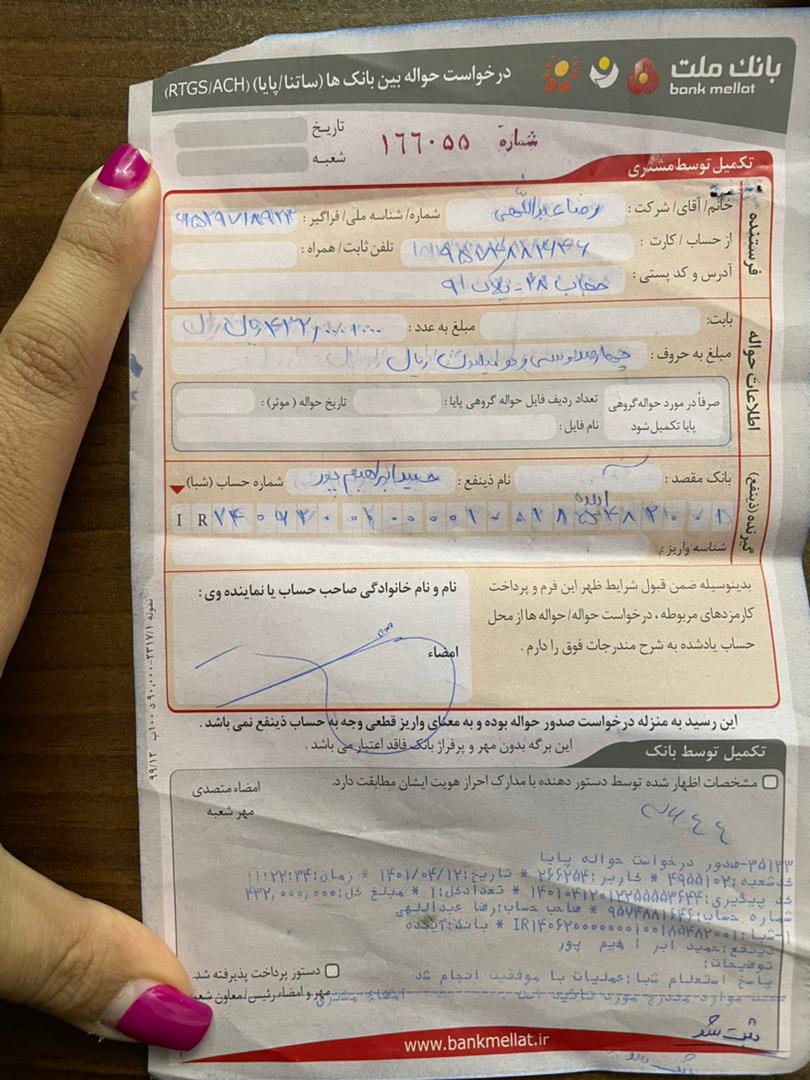 بانک ملت
bank mellat
درخواست حواله بین بانک ها (ساتنا/پایا) (RTGS/ACH)
تاریخ
شعبه
شماره ۱۶۶۰۵۵
تکمیل توسط مشتری
فرستنده
خانم/ آقای/ شرکت : رضا عبداللهی شماره/ شناسه ملی/ فراگیر :
از حساب / کارت : تلفن ثابت/ همراه :
آدرس و کد پستی : پلاک ۹۱
اطلاعات حواله
بابت: مبلغ به عدد : ۴۳۲,۰۰۰,۰۰۰ ریال
مبلغ به حروف : چهارصد و سی و دو میلیون ریال
صرفاً در مورد حواله گروهی پایا تکمیل شود
تعداد ردیف فایل حواله گروهی پایا : تاریخ حواله ( موثر) :
نام فایل :
گیرنده (ذینفع)
بانک مقصد : آینده نام ذینفع : حمید ابراهیم پور شماره حساب (شبا)
I R
شناسه واریز :
بدینوسیله ضمن قبول شرایط ظهر این فرم و پرداخت
کارمزدهای مربوطه ، درخواست حواله/ حواله ها از محل
حساب یادشده به شرح مندرجات فوق را دارم .
نام و نام خانوادگی صاحب حساب یا نماینده وی :
امضاء
این رسید به منزله درخواست صدور حواله بوده و به معنای واریز قطعی وجه به حساب ذینفع نمی باشد .
این برگه بدون مهر و پرفراژ بانک فاقد اعتبار می باشد .
تکمیل توسط بانک
مشخصات اظهار شده توسط دستور دهنده با مدارک احراز هویت ایشان مطابقت دارد.
امضاء متصدی
مهر شعبه
۳۵۱۲۳-صدور درخواست حواله پایا
کدشعبه:۴۹۵۵۱۰۲ * کاربر:۲۶۶۲۵۴ * تاریخ:۱۴۰۱/۰۴/۱۲ * زمان:۱۱:۲۲:۳۴
کد پیگیری:۱۴۰۱۰۴۱۲۰۱۲۲۵۵۵۵۳۶۴۴ * تعدادکل:۱ * مبلغ کل:۴۳۲,۰۰۰,۰۰۰
شماره حساب:۹۵۷۴۸۸۱۶۴۶ * صاحب حساب:رضا عبداللهی
۱-شبا: * بانک:آینده
ذینفع:حمید ابرا هیم پور
توضیحات:
پاسخ استعلام شبا:عملیات با موفقیت انجام شد
صحت موارد مندرج مورد تائید است
امضاء مشتری
دستور پرداخت پذیرفته شد.
مهر و امضاء رئیس/ معاون شعبه
ثبت شد
www.bankmellat.ir